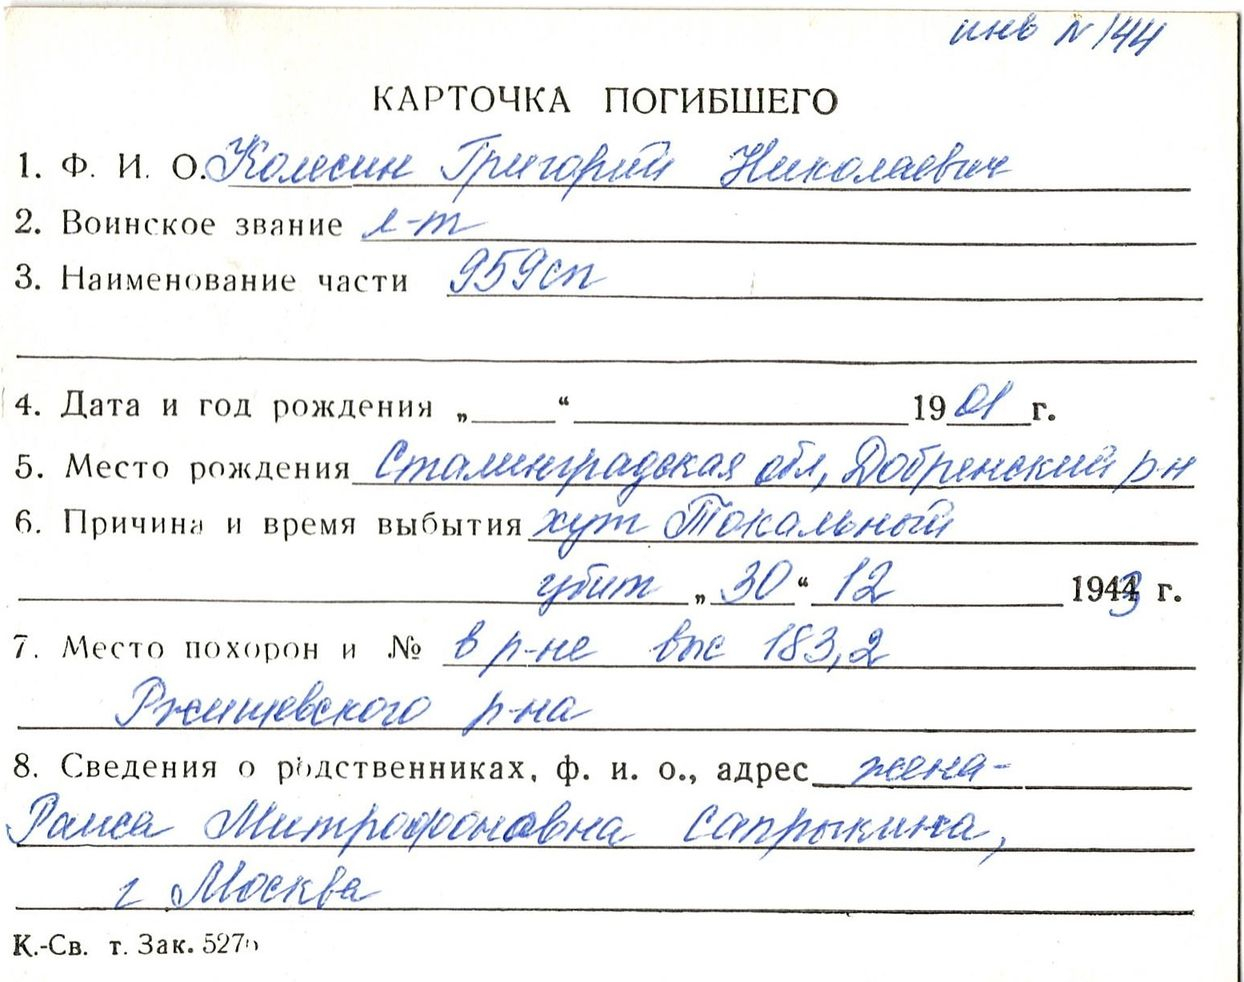 инв № 144
КАРТОЧКА ПОГИБШЕГО
1. Ф. И. О. Колесин Григорий Николаевич
2. Воинское звание л-т
3. Наименование части 959сп
4. Дата и год рождения „ “ 1901 г.
5. Место рождения Сталинградская обл, Добренский р-н
6. Причина и время выбытия хут Токальный
убит „30“ 12 1943 г.
7. Место похорон и № в р-не выс 183,2
Ржищевского р-на
8. Сведения о родственниках, ф. и. о., адрес жена-
Раиса Митрофоновна Сапрыкина,
г Москва
К.-Св. т. Зак.